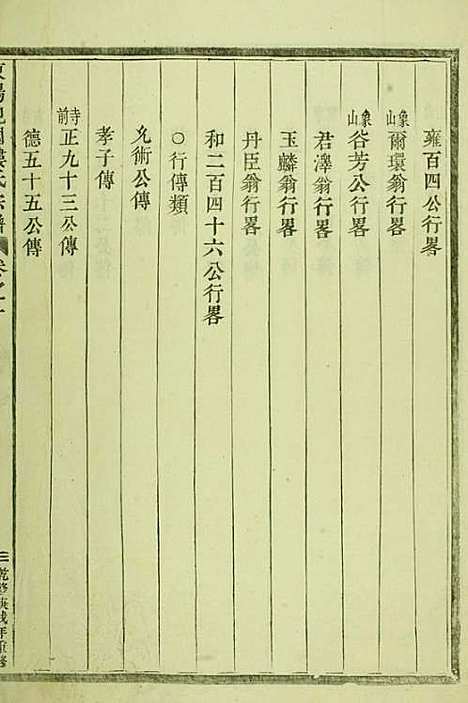 雍百四公行畧
象山爾環翁行畧
象山谷芳公行畧
君澤翁行畧
玉麟翁行畧
丹臣翁行畧
和二百四十六公行畧
○行傳類
允術公傳
孝子傳
寺前正九十三公傳
德五十五公傳